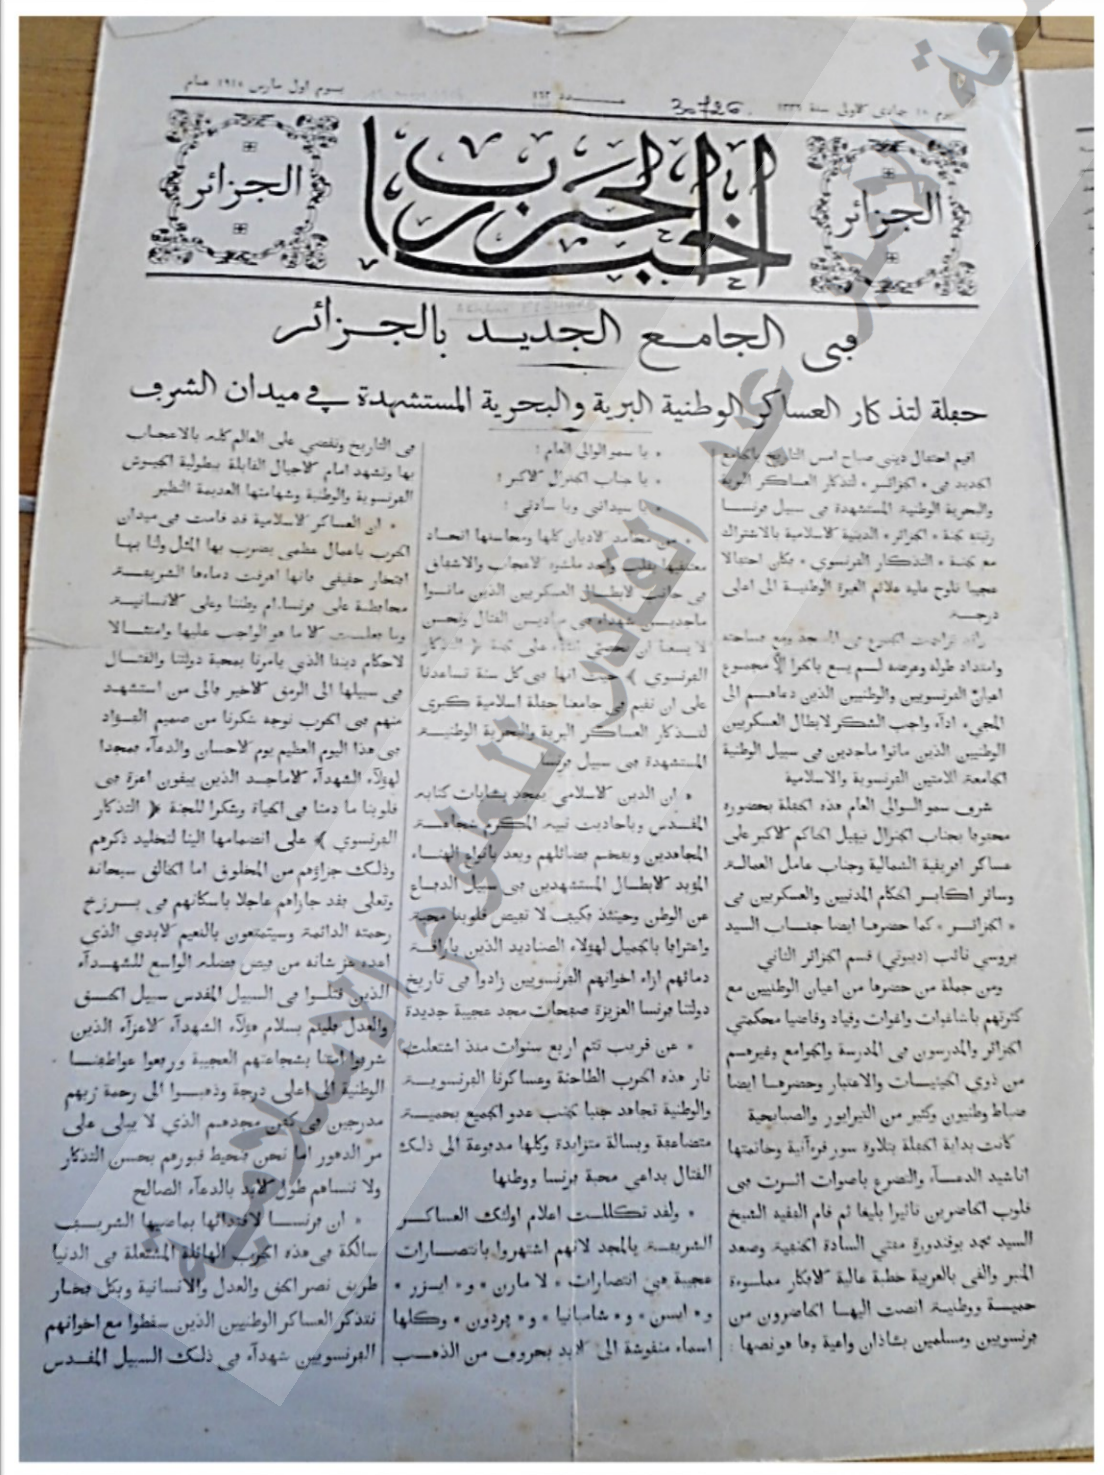 يوم ١٨ جمادى الاولى سنة ١٣٣٦
30726.
عـــدد ١٦٣
يوم اول مارس ١٩١٨ عام
الجزائر
اخبار الحرب
الجزائر
في الجامع الجديد بالجزائر
حفلة لتذكار العساكر الوطنية البرية والبحرية المستشهدة في ميدان الشرف
اقيم احتفال ديني صباح امس التاريخ بالجامع
الجديد في « الجزائر » لتذكار العساكر البرية
والبحرية الوطنية المستشهدة في سبيل فرنسا
رتبته لجنة « الجزائر » الدينية الاسلامية بالاشتراك
مع لجنة « التذكار الفرنسوي » فكان احتفالا
عجيبا تلوح عليه علائم الغيرة الوطنية الى اعلى
درجة
وقد تزاحمت الجموع في المسجد ومع فساحته
وامتداد طوله وعرضه لم يسع بالحرا الا مجموع
اعيان الفرنسويين والوطنيين الذين دعاهم الى
المجيء اداء واجب الشكر لابطال العسكريين
الوطنيين الذين ماتوا ماجدين في سبيل الوطنية
الجامعة للامتين الفرنسوية والاسلامية
شرف سمو الوالى العام هذه الحفلة بحضوره
محتوفا بجناب الجنرال نيفيل الحاكم الاكبر على
عساكر افريقية الشمالية وجناب عامل العمالة
وسائر اكابر الحكام المدنيين والعسكريين في
« الجزائر » كما حضرها ايضا جناب السيد
بروسي نائب (ديبوتي) قسم الجزائر الثاني
ومن جملة من حضرها من اعيان الوطنيين مع
كثرتهم باشاغوات واغوات وقياد وقاضيا محكمتي
الجزائر والمدرسون في المدرسة والجوامع وغيرهم
من ذوي الحيثيات والاعتبار وحضرها ايضا
ضباط وطنيون وكثير من التيرايور والصبايحية
كانت بداية الحفلة بتلاوة سور قرءانية وخاتمتها
اناشيد الدعاء والتضرع باصوات اثرت في
قلوب الحاضرين تاثيرا بليغا ثم قام الفقيه الشيخ
السيد محمد بوقندورة مفتي السادة الحنفية وصعد
المنبر والقى بالعربية خطبة عالية الافكار مملوءة
حمية ووطنية انصت اليها الحاضرون من
فرنسويين ومسلمين بئاذان واعية وها هو نصها :
« يا سمو الوالى العام !
« يا جناب الجنرال الاكبر !
« يا سيداتي ويا سادتي !
« من محامد الاديان كلها ومحاسنها اتحاد
معتنقيها بقلب واحد ملئه الاعجاب والاشفاق
في جانب الابطال العسكريين الذين ماتوا
ماجدين شهداء في ميادين القتال ونحن
لا يسعنا ان نحصي الثناء على لجنة ﴿ التذكار
الفرنسوي ﴾ حيث انها في كل سنة تساعدنا
على ان نقيم في جامعنا حفلة اسلامية كبرى
لتذكار العساكر البرية والبحرية الوطنية
المستشهدة في سبيل فرنسا
« ان الدين الاسلامي يمجد بئايات كتابه
المقدس وباحاديث نبيه المكرم شجاعة
المجاهدين ويفخم فضائلهم ويعد بانواع الهناء
المؤبد الابطال المستشهدين في سبيل الدفاع
عن الوطن وحينئذ فكيف لا تفيض قلوبنا محبة
واعترافا بالجميل لهؤلاء الصناديد الذين باراقة
دمائهم ازاء اخوانهم الفرنسويين زادوا في تاريخ
دولتنا فرنسا العزيزة صفحات مجد عجيبة جديدة
« عن قريب تتم اربع سنوات منذ اشتعلت
نار هذه الحرب الطاحنة وعساكرنا الفرنسوية
والوطنية تجاهد جنبا لجنب عدو الجميع بحمية
متضاعفة وبسالة متزايدة وكلها مدفوعة الى ذلك
القتال بداعي محبة فرنسا ووطنها
« ولقد تكللت اعلام اولئك العساكر
الشريفة بالمجد لانهم اشتهروا بانتصارات
عجيبة في انتصارات « لا مارن » و « ايزر »
و « ايسن » و « شامبانيا » و « فردون » وكلها
اسماء منقوشة الى الابد بحروف من الذهب
في التاريخ وتقضي على العالم كله بالاعجاب
بها وتشهد امام الاجيال القابلة ببطولية الجيوش
الفرنسوية والوطنية وشهامتها العديمة النظير
« ان العساكر الاسلامية قد قامت في ميدان
الحرب باعمال عظمى يضرب بها المثل ولنا بها
افتخار حقيقي فانها اهرقت دماءها الشريفة
محافظة على فرنسا ام وطننا وعلى الانسانية
وما فعلت الا ما هو الواجب عليها وامتثالا
لاحكام ديننا الذي يامرنا بمحبة دولتنا والقتال
في سبيلها الى الرمق الاخير فالى من استشهد
منهم في الحرب نوجه شكرنا من صميم الفؤاد
في هذا اليوم العظيم يوم الاحسان والدعاء فمجدا
لهؤلاء الشهداء الاماجد الذين يبقون اعزة في
قلوبنا ما دمنا في الحياة وشكرا للجنة ﴿ التذكار
الفرنسوي ﴾ على انضمامها الينا لتخليد ذكرهم
وذلك جزاؤهم من المخلوق اما الخالق سبحانه
وتعلى فقد جازاهم عاجلا باسكانهم في برزخ
رحمته الدائمة وسيتمتعون بالنعيم الابدي الذي
اعده عز شانه من فيض فضله الواسع للشهداء
الذين قتلوا في السبيل المقدس سبيل الحق
والعدل فليتم بسلام هؤلاء الشهداء الاعزاء الذين
شرفوا امتنا بشجاعتهم العجيبة ورفعوا عواطفنا
الوطنية الى اعلى درجة وذهبوا الى رحمة ربهم
مدرجين في كفن مجدهم الذي لا يبلى على
مر الدهور اما نحن فنحيط قبورهم بحسن التذكار
ولا ننساهم طول الابد بالدعاء الصالح
« ان فرنسا لاقتدائها بماضيها الشريف
سالكة في هذه الحرب الهائلة المشتعلة في الدنيا
طريق نصر الحق والعدل والانسانية وبكل فخار
نتذكر العساكر الوطنيين الذين سقطوا مع اخوانهم
الفرنسويين شهداء في ذلك السبيل المقدس
جامعة الأمير عبد القادر للعلوم الإسلامية